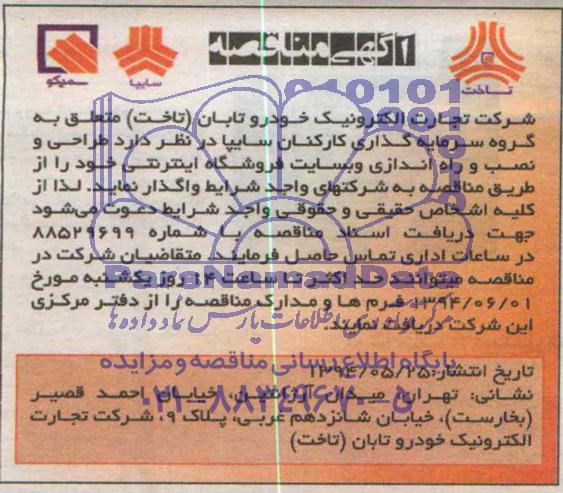 آگهی مناقصه
تاخت
سایپا
سمیکو
شرکت تجارت الکترونیک خودرو تابان (تاخت) متعلق به
گروه سرمایه گذاری کارکنان سایپا در نظر دارد طراحی و
نصب و راه اندازی وبسایت فروشگاه اینترنتی خود را از
طریق مناقصه به شرکتهای واجد شرایط واگذار نماید. لذا از
کلیه اشخاص حقیقی و حقوقی واجد شرایط دعوت می‌شود
جهت دریافت اسناد مناقصه با شماره ۸۸۵۲۹۶۹۹
در ساعات اداری تماس حاصل فرمایند. متقاضیان شرکت در
مناقصه میتوانند حد اکثر تا ساعت ۱۴ روز یکشنبه مورخ
۱۳۹۴/۰۶/۰۱ فرم ها و مدارک مناقصه را از دفتر مرکزی
این شرکت دریافت نمایند.
تاریخ انتشار: ۱۳۹۴/۰۵/۲۵
نشانی: تهران، میدان آرژانتین، خیابان احمد قصیر
(بخارست)، خیابان شانزدهم غربی، پلاک ۹، شرکت تجارت
الکترونیک خودرو تابان (تاخت)
ParsNamadData
مرکز فرآوری اطلاعات پارس نماد داده ها
پایگاه اطلاع رسانی مناقصه و مزایده
۰۲۱-۸۸۳۴۹۶۷۰-۵